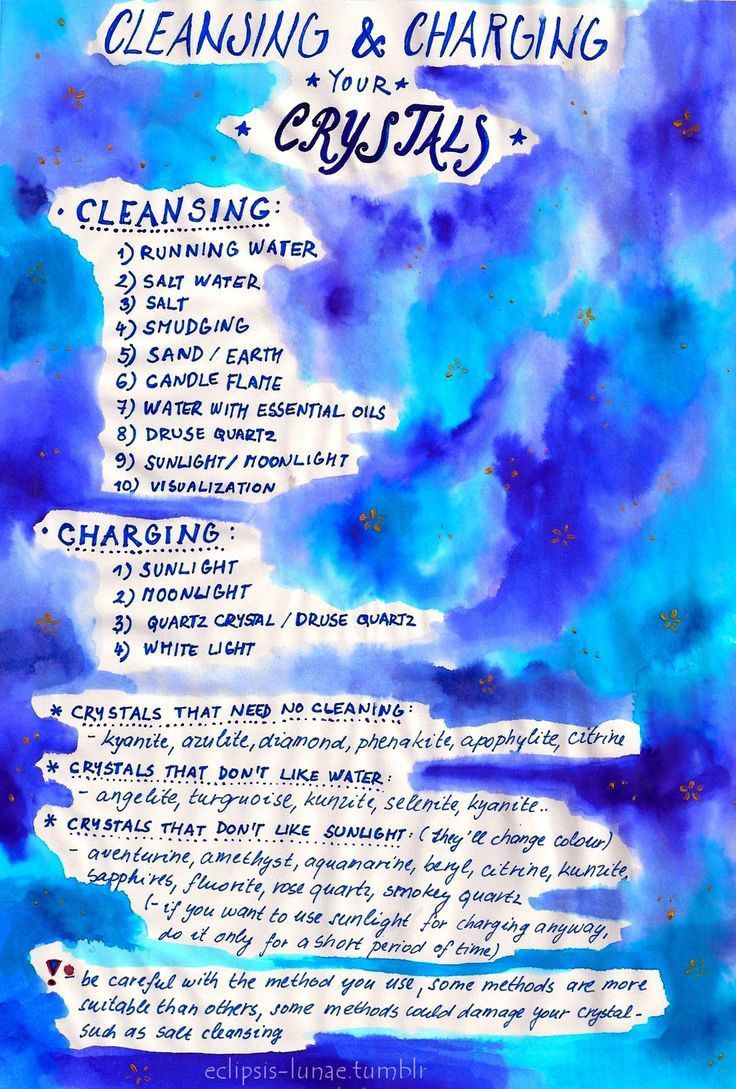 CLEANSING & CHARGING
*YOUR*
* CRYSTALS *
• CLEANSING:
1) RUNNING WATER
2) SALT WATER
3) SALT
4) SMUDGING
5) SAND / EARTH
6) CANDLE FLAME
7) WATER WITH ESSENTIAL OILS
8) DRUSE QUARTZ
9) SUNLIGHT / MOONLIGHT
10) VISUALIZATION
• CHARGING:
1) SUNLIGHT
2) MOONLIGHT
3) QUARTZ CRYSTAL / DRUSE QUARTZ
4) WHITE LIGHT
* CRYSTALS THAT NEED NO CLEANING:
- kyanite, azulite, diamond, phenakite, apophylite, citrine
* CRYSTALS THAT DON'T LIKE WATER:
- angelite, turquoise, kunzite, selenite, kyanite..
* CRYSTALS THAT DON'T LIKE SUNLIGHT: (they'll change colour)
- aventurine, amethyst, aquamarine, beryl, citrine, kunzite,
sapphires, fluorite, rose quartz, smokey quartz
(- if you want to use sunlight for charging anyway,
do it only for a short period of time)
! - be careful with the method you use, some methods are more
suitable than others, some methods could damage your crystal -
such as salt cleansing
eclipsis-lunae.tumblr